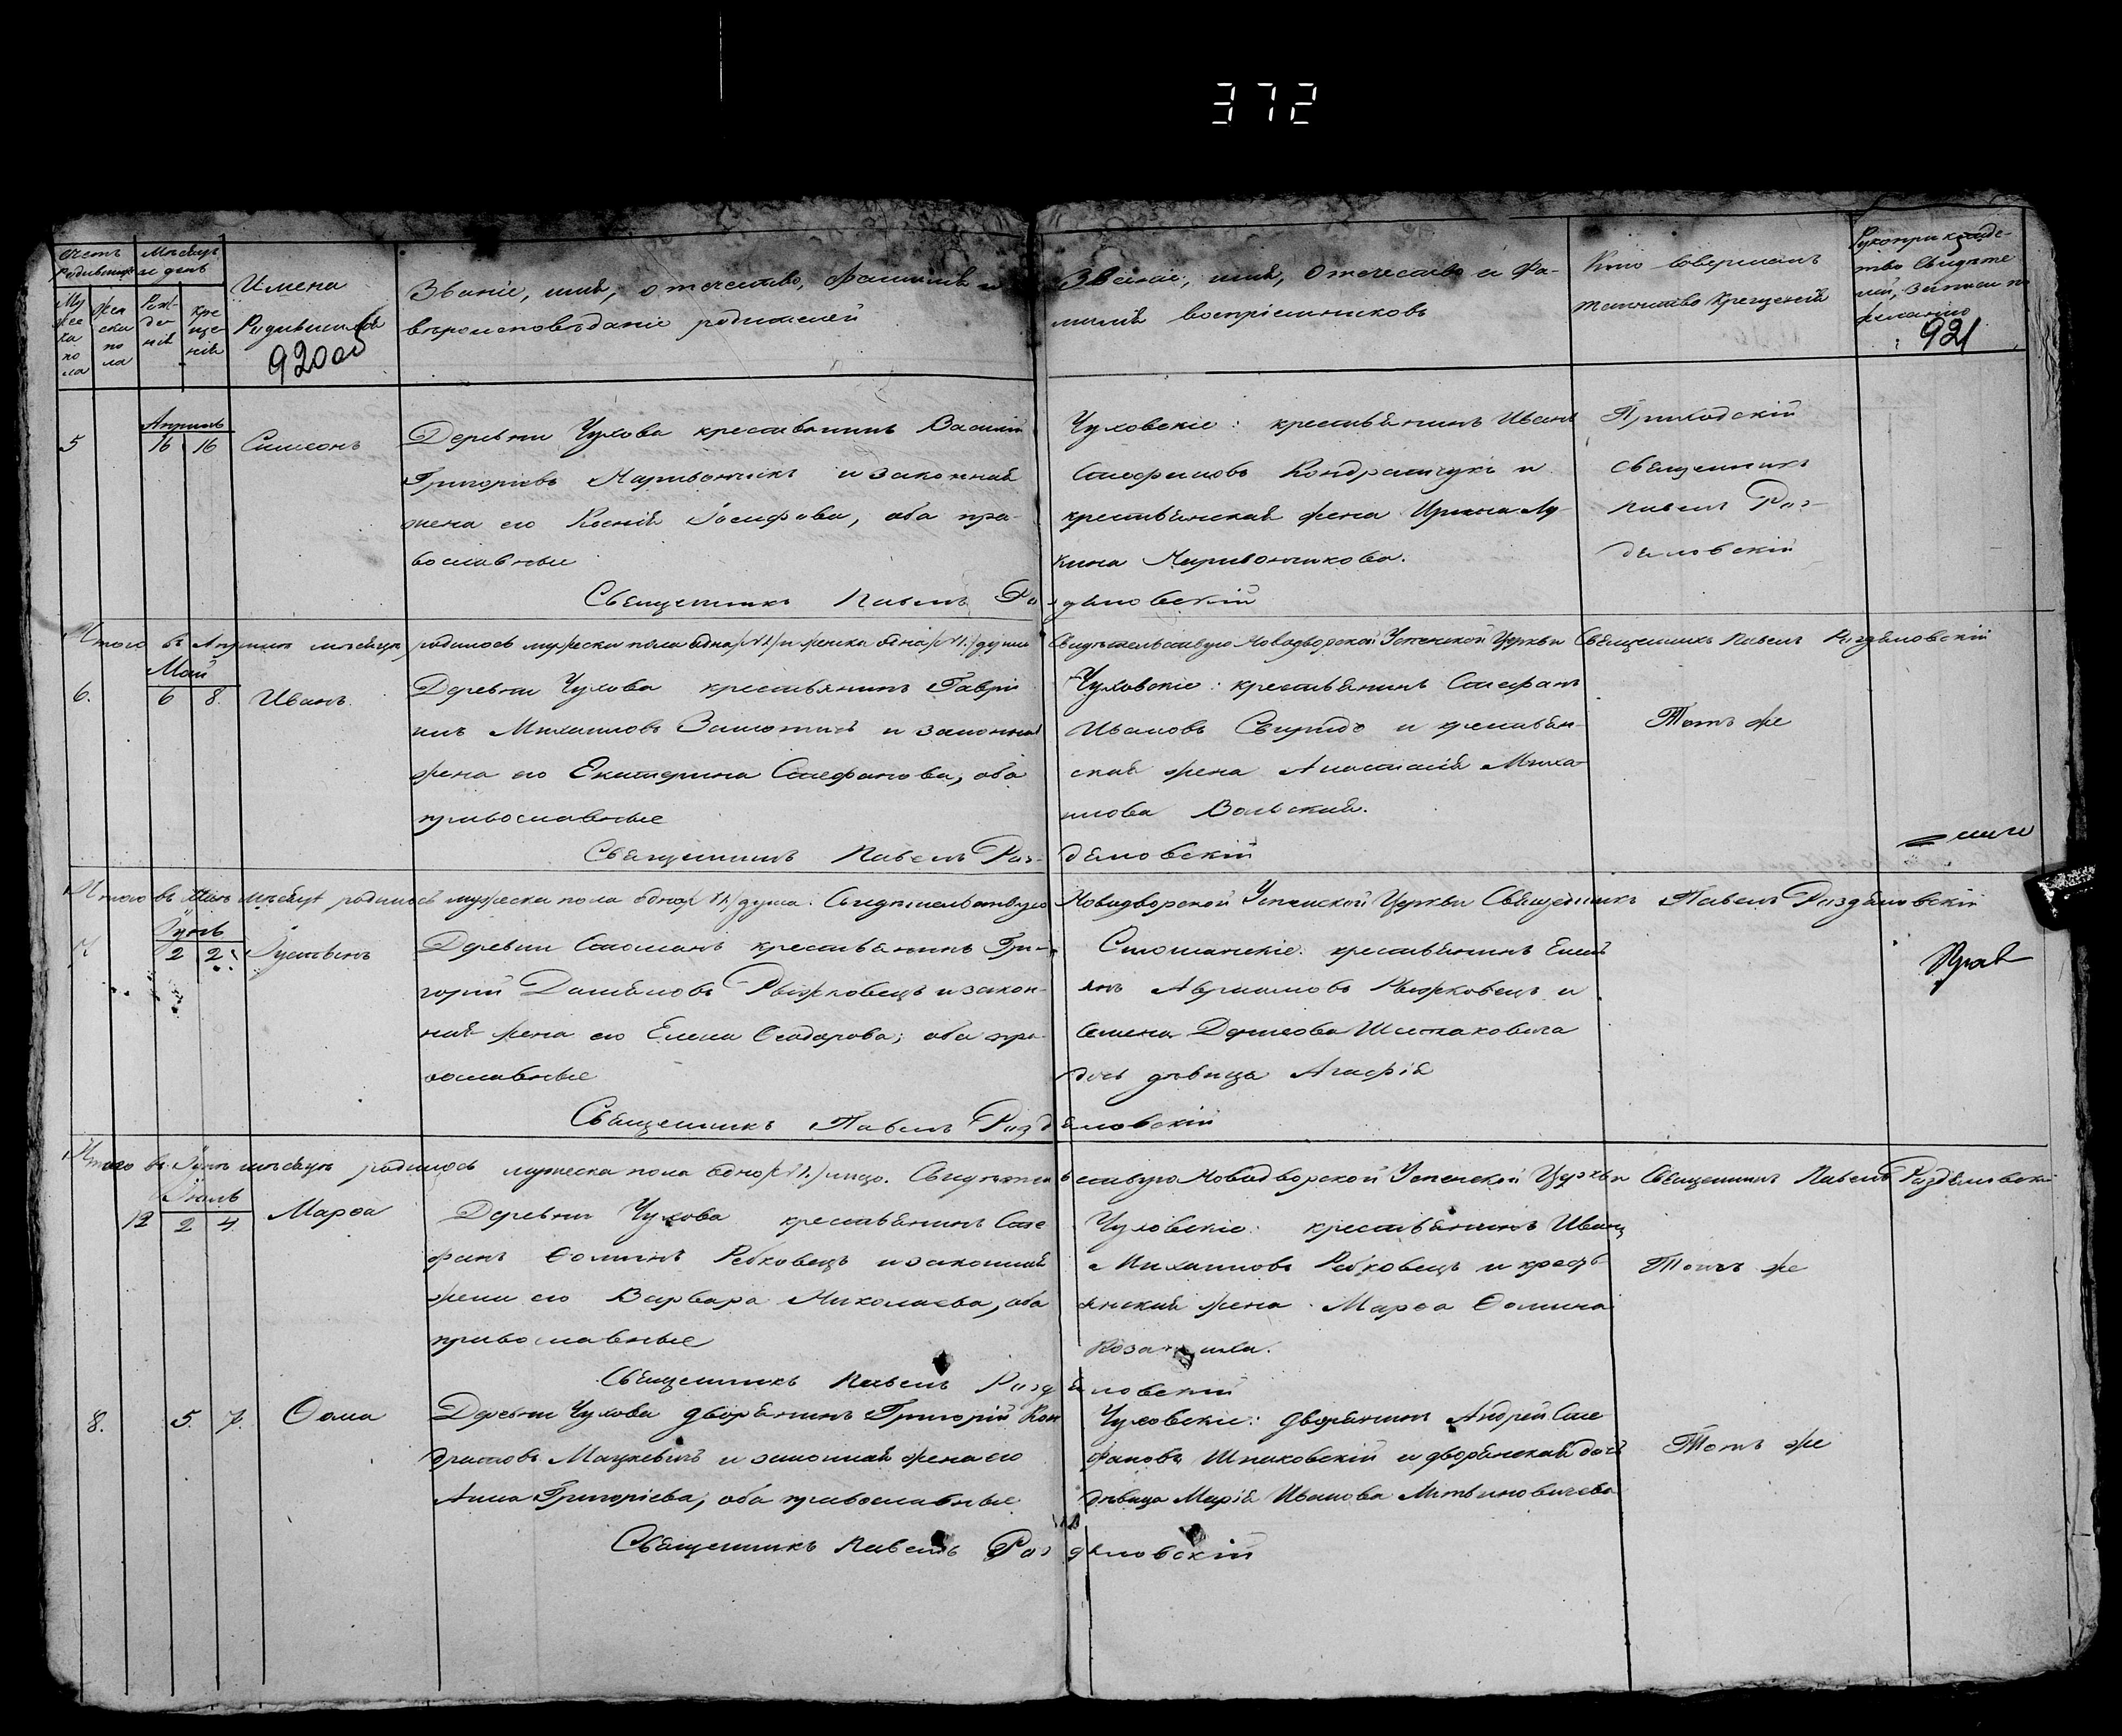 372
Счетъ Родившихся
Мѣсяцъ и день
Имена Родившихся
920об
Званіе, имя, отечество, фамилія и
вѣроисповѣданіе родителей
Званіе, имя, отечество и фа-
милія воспріемниковъ
Кто совершалъ
таинство крещенія
Рукоприкладс-
тво свидѣте
лей, записи по
желанію
921
Му
жес
ка
по
ла
Жен
ска
по
ла
Рож
де
нія
кре
ще
нія
Апрѣль
5 16 16 Симеонъ
Деревни Чухова крестьянинъ Василій
Григорьевъ Маривончикъ и законная
жена его Ксенія Іосифова, оба пра-
вославные
Чуховскіе: крестьянинъ Иванъ
Стефановъ Кондратчукъ и
крестьянская жена Ирина Лу
кина Маривончикова.
Приходскій
священникъ
Павелъ Раз-
дяловскій
Священникъ Павелъ Раздяловскій
Итого въ Апрѣлѣ мѣсяцѣ родилось мужеска пола одна /№1/ и женска одна /№1/ души Свидѣтельствую Новодворской Успенской Церкви Священникъ Павелъ Раздяловскій
Май
6. 6 8. Иванъ
Деревни Чухова крестьянинъ Гаврі
илъ Михаиловъ и законная
жена его Екатерина Стефанова, оба
православные
Чуховскіе: крестьянинъ Стефанъ
Ивановъ и крестьян-
ская жена Анастасія Миха
илова Вольская.
Тотъ же
Священникъ Павелъ Раз- дяловскій
Итого въ Маѣ мѣсяцѣ родилось мужеска пола одна /№1/ душа. Свидѣтельствую Новодворской Успенской Церкви Священникъ Павелъ Раздяловскій
Іунь
7. 2 2. Іустинъ
Деревни Стошанъ крестьянинъ Гри-
горій Даміановъ Рыжковецъ и закон-
ная жена его Елена Ѳеодорова; оба пра-
вославные
Стошанскіе: крестьянинъ Емел
янъ Авраамовъ Рыжковецъ и
Семена Денисова Шостаковича
дочь дѣвица Агафія
Священникъ Павелъ Раздяловскій
Итого въ Іунѣ мѣсяцѣ родилось мужеска пола одно /№1/ лицо. Свидѣтельствую Новодворской Успенской Церкви Священникъ Павелъ Раздяловскій
Іюль
12 2 4 Марѳа
Деревни Чухова крестьянинъ Сте
фанъ Ѳоминъ Рабковецъ и законная
жена его Варвара Николаева, оба
православные
Чуховскіе: крестьянинъ Иванъ
Михаиловъ Рабковецъ и кресть
янская жена Марѳа Ѳомина
Тотъ же
Священникъ Павелъ Раздяловскій
8. 5. 7. Ѳома
Деревни Чухова дворянинъ Григорій Кон
дратовъ Мацкевичъ и законная жена его
Анна Григоріева, оба православные
Чуховскіе: дворянинъ Андрей Сте
фановъ Шпаковскій и дворянская дочь
дѣвица Марія Иванова Литвиновичева
Тотъ же
Священникъ Павелъ Раздяловскій